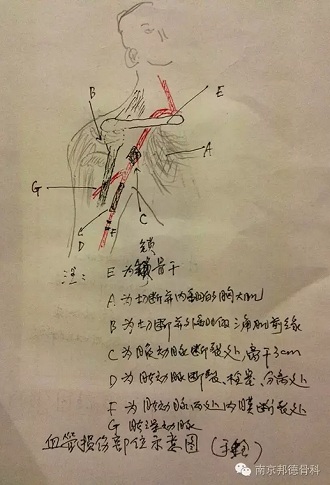 B
E
A
G
D
F
C
锁
注: E 为锁骨干
A 为切断并内翻的胸大肌
B 为切断并外翻的三角肌前缘
C 为腋动脉断裂处,离干3cm
D 为肱动脉断裂、栓塞、分离处
F 为肱动脉两处内膜断裂处
G 肱深动脉
血管损伤部位示意图(手绘)
南京邦德骨科